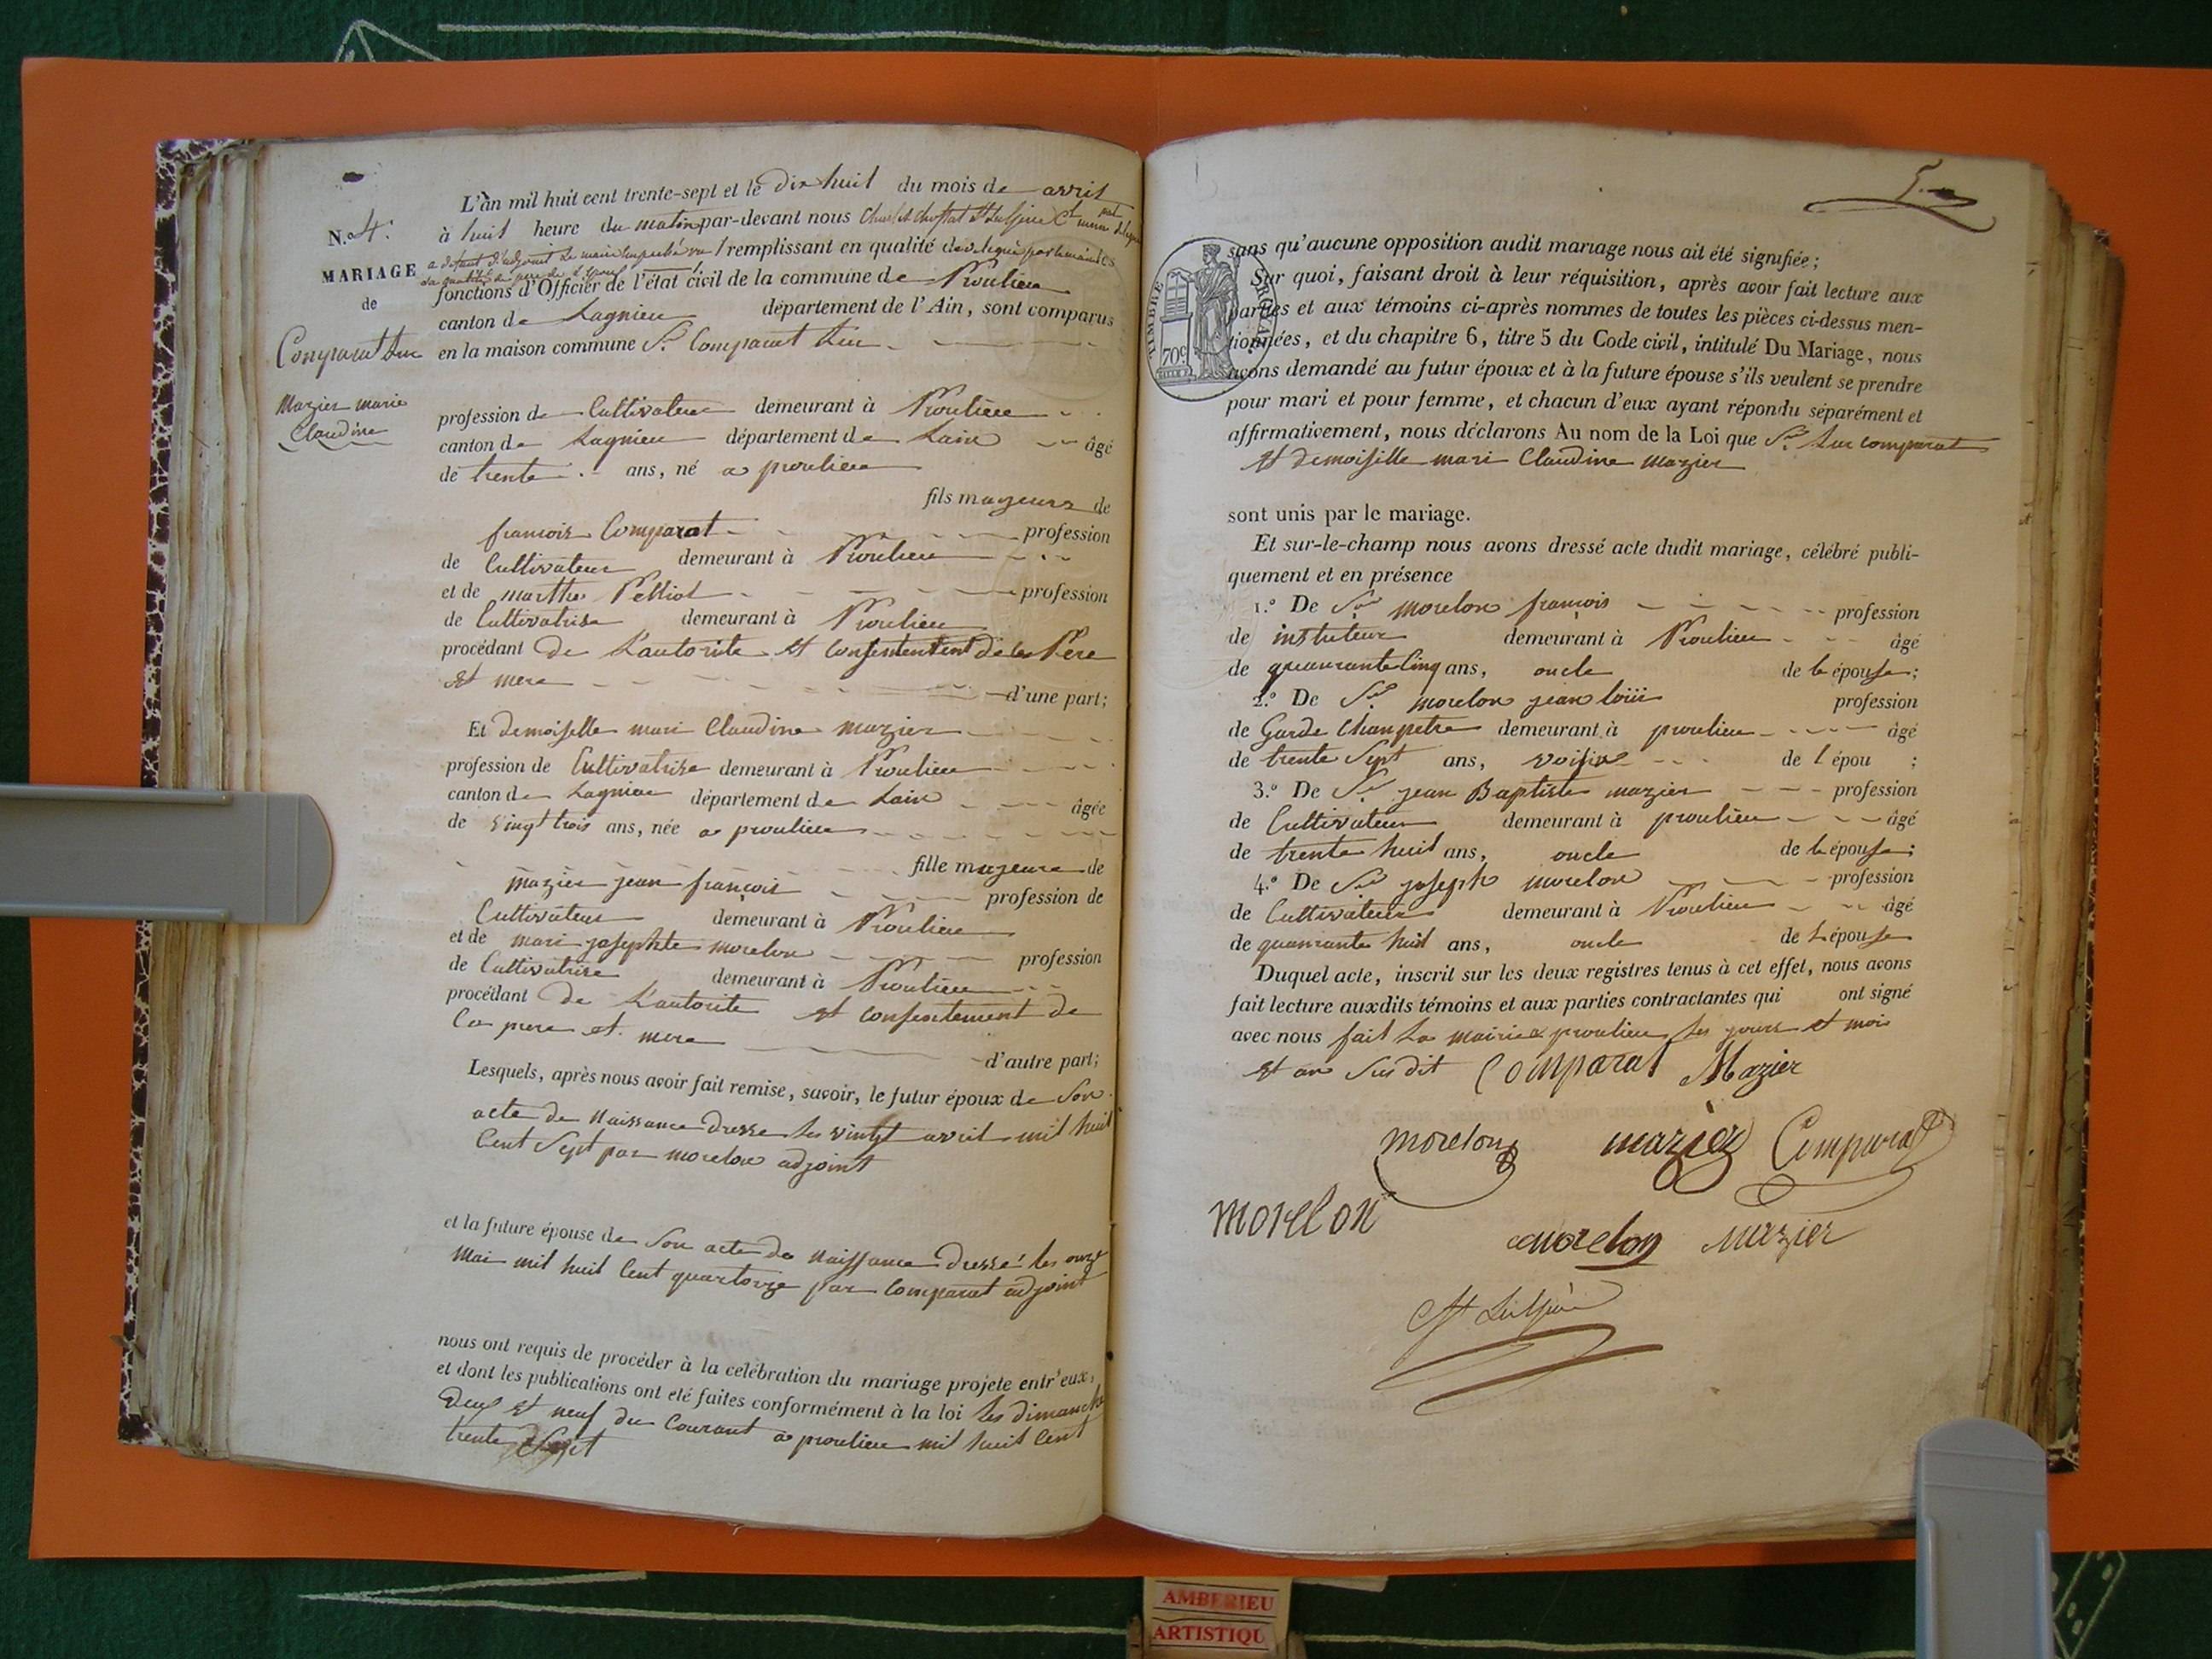 L'an mil huit cent trente-sept et le dix huit du mois de avril
N.o 4. à huit heure du matin par-devant nous
remplissant en qualité
MARIAGE
de
fonctions d'Officier de l'état civil de la commune de Proulieu
canton de Lagnieu département de l'Ain, sont comparus
Comparat Luc
en la maison commune Sr. Comparat Luc
Mazier marie
Claudine
profession de Cultivateur demeurant à Proulieu
canton de Lagnieu département de Lain âgé
de trente ans, né a proulieu
fils mageurs de
francois Comparat profession
de Cultivateur demeurant à Proulieu
et de marthe Pelliot profession
de Cultivatrise demeurant à Proulieu
procédant de L'autorite et Consentement de Pere
et mere d'une part;
Et demoiselle mari Claudine mazier
profession de Cultivatrise demeurant à Proulieu
canton de Lagnieu département de Lain âgée
de vingt trois ans, née a proulieu
fille mageure de
mazier jean françois profession de
Cultivateur demeurant à Proulieu
et de mari josephte morelon profession
de Cultivatrise demeurant à Proulieu
procédant de L'autorite et consentement de
pere et mere d'autre part;
Lesquels, après nous avoir fait remise, savoir, le futur époux de Son
acte de Naissance dresse les vingt avril mil huit
Cent Sept par morelon adjoint
et la future épouse de Son acte de Naissance dressé les onze
mai mil huit Cent quartorze par Comparat adjoint
nous ont requis de procéder à la célébration du mariage projeté entr'eux,
et dont les publications ont été faites conformément à la loi les dimanche
Deux et neuf du Courant a proulieu mil huit Cent
trente Sept
5.
TIMBRE ROYAL
70c.
sans qu'aucune opposition audit mariage nous ait été signifiée;
Sur quoi, faisant droit à leur réquisition, après avoir fait lecture aux
parties et aux témoins ci-après nommes de toutes les pièces ci-dessus men-
tionnées, et du chapitre 6, titre 5 du Code civil, intitulé Du Mariage, nous
avons demandé au futur époux et à la future épouse s'ils veulent se prendre
pour mari et pour femme, et chacun d'eux ayant répondu séparément et
affirmativement, nous déclarons Au nom de la Loi que Sr. Luc comparat
et demoiselle mari Claudine mazier
sont unis par le mariage.
Et sur-le-champ nous avons dressé acte dudit mariage, célébré publi-
quement et en présence
1.o De Sr morelon françois profession
de instituteur demeurant à Proulieu âgé
de quarante Cinq ans, oncle de le épouse;
2.o De Sr. morelon jean loüi profession
de Garde Champetre demeurant à proulieu âgé
de trente Sept ans, voisin de l'épou ;
3.o De Sr jean Baptiste mazier profession
de Cultivateur demeurant à proulieu âgé
de trente huit ans, oncle de le épouse;
4.o De Sr joseph morelon profession
de Cultivateur demeurant à Proulieu âgé
de quarante huit ans, oncle de L'épouse
Duquel acte, inscrit sur les deux registres tenus à cet effet, nous avons
fait lecture auxdits témoins et aux parties contractantes qui ont signé
avec nous fait La mairie a proulieu les jours et mois
et an Susdit Comparat Mazier
morelon mazier Comparat
morelon
morelon mazier
AMBERIEU
ARTISTIQU